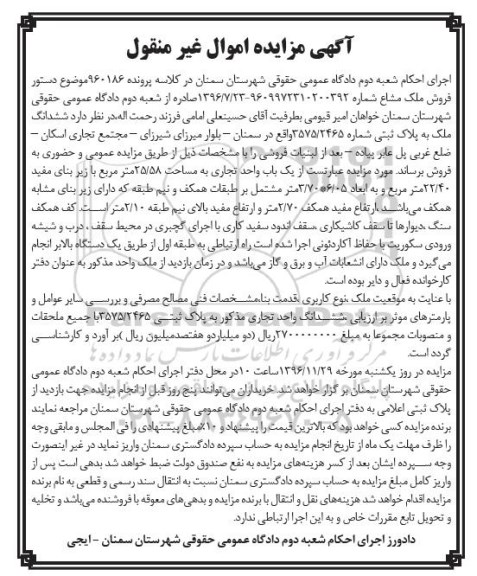 آگهی مزایده اموال غیر منقول
اجرای احکام شعبه دوم دادگاه عمومی حقوقی شهرستان سمنان در کلاسه پرونده ۹۶۰۱۸۶موضوع دستور
فروش ملک مشاع شماره ۹۶۰۹۹۷۲۳۱۰۲۰۰۳۹۲-۱۳۹۶/۷/۲۳صادره از شعبه دوم دادگاه عمومی حقوقی
شهرستان سمنان خواهان امیر قیومی بطرفیت آقای حسینعلی امامی فرزند رحمت اله،در نظر دارد ششدانگ
ملک به پلاک ثبتی شماره ۳۵۷۵/۲۴۶۵واقع در سمنان – بلوار میرزای شیرازی – مجتمع تجاری اسکان –
ضلع غربی پل عابر پیاده – بعد از لبنیات فروشی را با مشخصات ذیل از طریق مزایده عمومی و حضوری به
فروش برساند. مورد مزایده عبارتست از یک باب واحد تجاری به مساحت ۲۵/۵۸متر مربع با زیر بنای مفید
۲۲/۴۰متر مربع و به ابعاد ۶/۰۵*۳/۷۰متر مشتمل بر طبقات همکف و نیم طبقه که دارای زیر بنای مشابه
همکف می‌باشد.ارتفاع مفید همکف ۲/۷۰متر و ارتفاع مفید بالای نیم طبقه ۲/۱۰متر است. کف همکف
سنگ ،دیوارها تا سقف کاشیکاری ،سقف اندود سفید کاری با اجرای گچبری در محیط سقف ، درب و شیشه
ورودی سکوریت با حفاظ آکاردئونی اجرا شده است راه ارتباطی به طبقه اول از طریق یک دستگاه بالابر انجام
می‌گیرد و ملک دارای انشعابات آب و برق و گاز می‌باشد و در زمان بازدید از ملک واحد مذکور به عنوان دفتر
کارخوانده فعال و دایر بوده است.
با عنایت به موقعیت ملک ،نوع کاربری ،قدمت بنا،مشخصات فنی مصالح مصرفی و بررسی سایر عوامل و
پارمترهای موثر بر ارزیابی ،ششدانگ واحد تجاری مذکور به پلاک ثبتی ۳۵۷۵/۲۴۶۵با جمیع ملحقات
و منصوبات مجموعا به مبلغ ۲۷۰۰۰۰۰۰۰۰ریال (دو میلیاردو هفتصدمیلیون ریال )بر آورد و کارشناسی
گردد است.
مزایده در روز یکشنبه مورخه ۱۳۹۶/۱۱/۲۹ساعت ۱۰در محل دفتر اجرای احکام شعبه دوم دادگاه عمومی
حقوقی شهرستان سمنان بر گزار خواهد شد.خریداران می‌توانند پنج روز قبل از انجام مزایده جهت بازدید از
پلاک ثبتی اعلامی به دفتر اجرای احکام شعبه دوم دادگاه عمومی حقوقی شهرستان سمنان مراجعه نمایند
برنده مزایده کسی خواهد بود که بالاترین قیمت را پیشنهاد و ۱۰٪مبلغ پیشنهادی را فی المجلس و مابقی وجه
را ظرف مهلت یک ماه از تاریخ انجام مزایده به حساب سپرده دادگستری سمنان واریز نماید در غیر اینصورت
وجه سپرده ایشان بعد از کسر هزینه‌های مزایده به نفع صندوق دولت ضبط خواهد شد بدهی است پس از
واریز کامل مبلغ مزایده به حساب سپرده دادگستری سمنان نسبت به انتقال سند رسمی و قطعی به نام برنده
مزایده اقدام خواهد شد هزینه‌های نقل و انتقال با برنده مزایده و بدهی‌های معوقه با فروشنده می‌باشد و تخلیه
و تحویل تابع مقررات خاص و به این اجرا ارتباطی ندارد.
دادورز اجرای احکام شعبه دوم دادگاه عمومی حقوقی شهرستان سمنان – ایجی